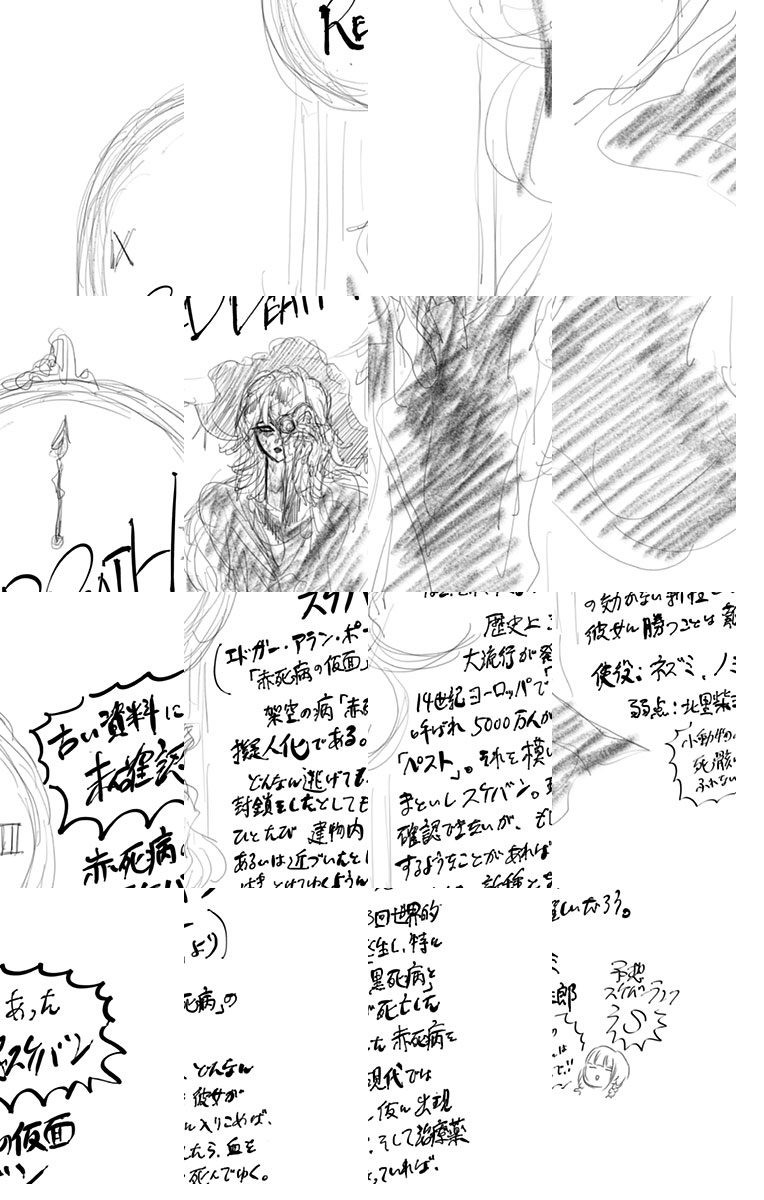 RE
IX
D DEATH
DEATH
古い資料に
未確認
赤死病
スケバ
(エドガー・アラン・ポー
「赤死病の仮面」
架空の病「赤
擬人化である。
どんなに逃げても、
封鎖をしたとしても
ひとたび 建物内
あるいは近づいたとし
歴史上
大流行が発
14世紀ヨーロッパで
呼ばれ 5000万人が
「ペスト」。それを模
まといしスケバン。
確認できないが、
するようなことがあれば
新種と
の効かない新種
彼女に勝つことは
使役:ネズミ、ノミ
弱点:北里柴三
小動物の
死骸
ふれない
あった
スケバン
の仮面
より)
死病」の
、どんなに
彼女が
に入りこめば、
たら、血を
死んでゆく。
3回世界的
生し、特に
黒死病」と
死亡した
た 赤死病を
現代では
仮に出現
、そして治療薬
っていれば、
難しいだろう。
ミ
郎
予想
スケバンランク
S